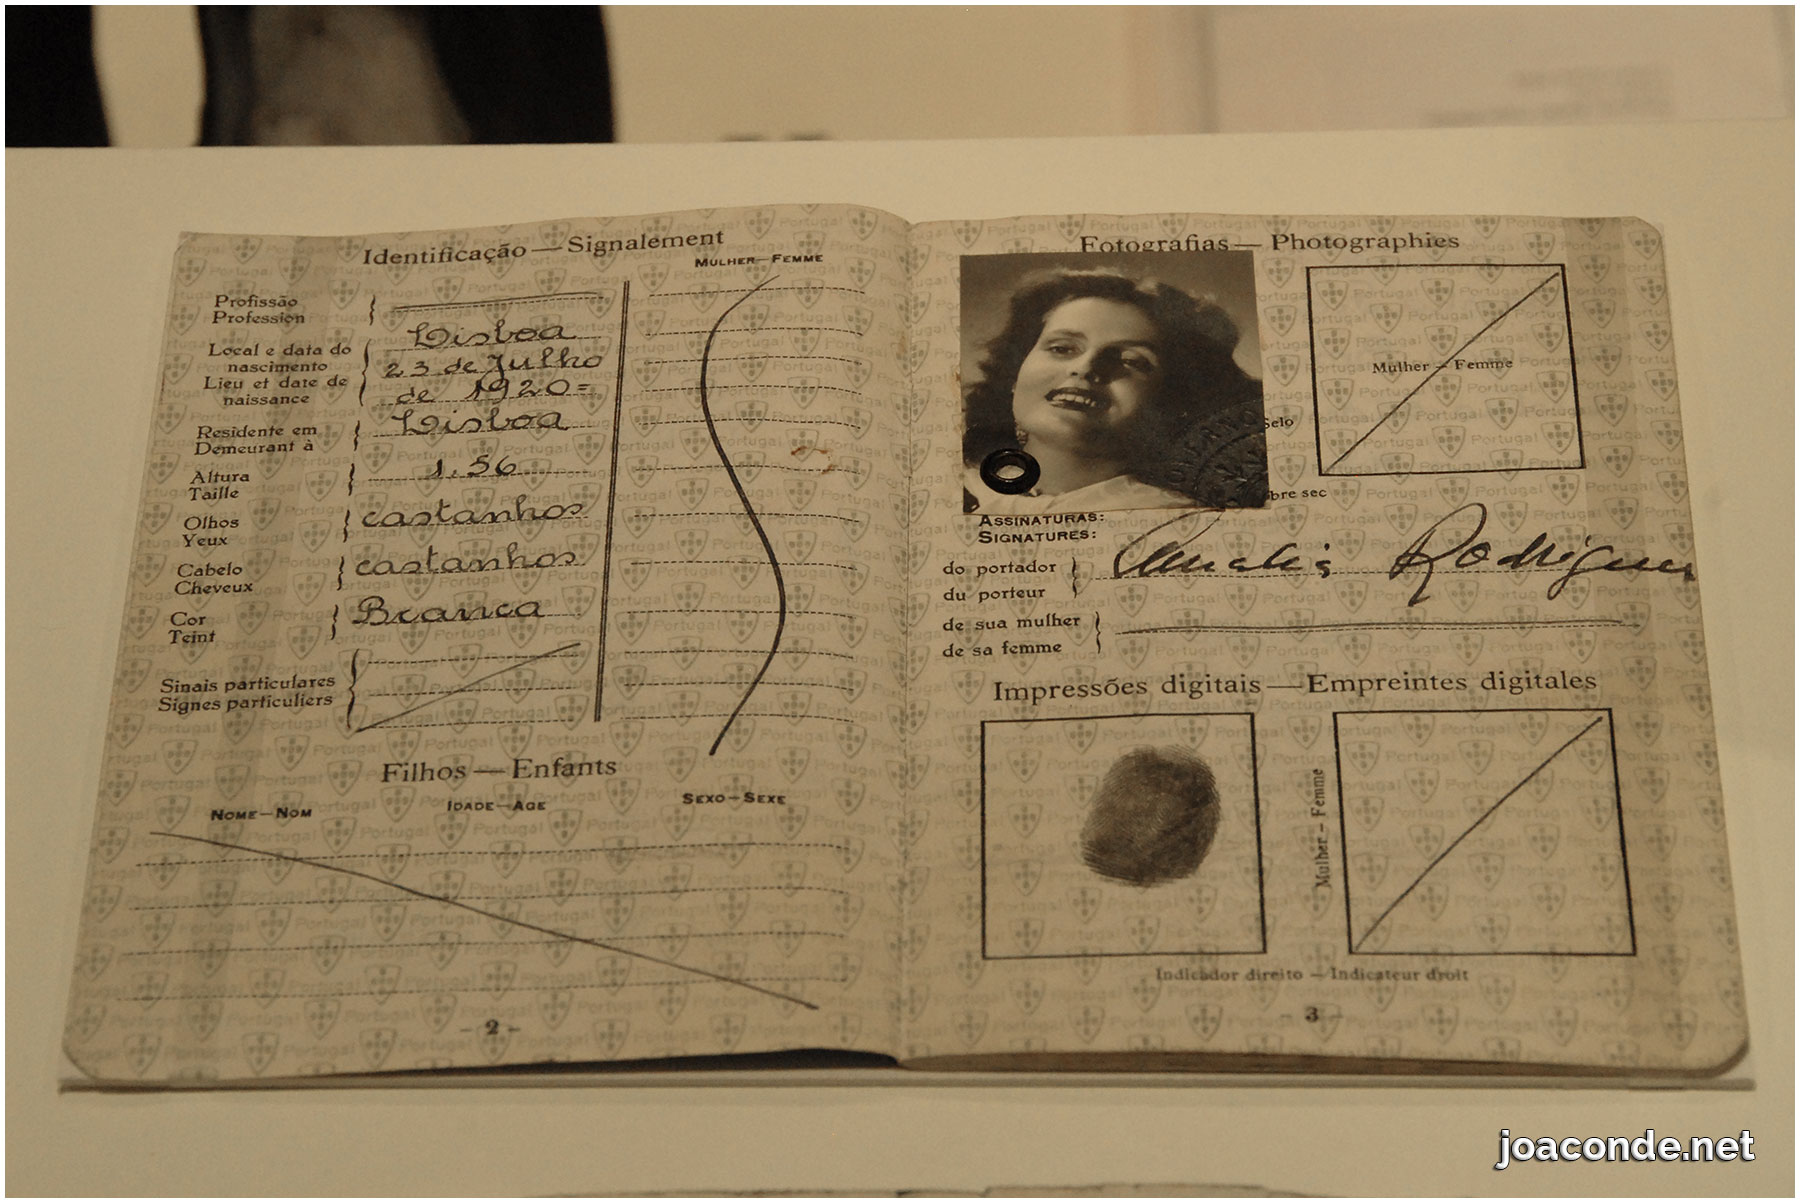 Identificação — Signalement
MULHER—FEMME
Profissão
Profession
Local e data do
nascimento
Lieu et date de
naissance
Lisboa
23 de Julho
de 1920=
Residente em
Demeurant à
Lisboa
Altura
Taille
1.56
Olhos
Yeux
castanhos
Cabelo
Cheveux
castanhos
Cor
Teint
Branca
Sinais particulares
Signes particuliers
Filhos — Enfants
NOME—NOM
IDADE—AGE
SEXO—SEXE
- 2 -
Fotografias — Photographies
Mulher — Femme
Selo
bre sec
ASSINATURAS:
SIGNATURES:
do portador
du porteur
Amalia Rodrigues
de sua mulher
de sa femme
Impressões digitais — Empreintes digitales
Mulher – Femme
Indicador direito – Indicateur droit
3 -
joaconde.net